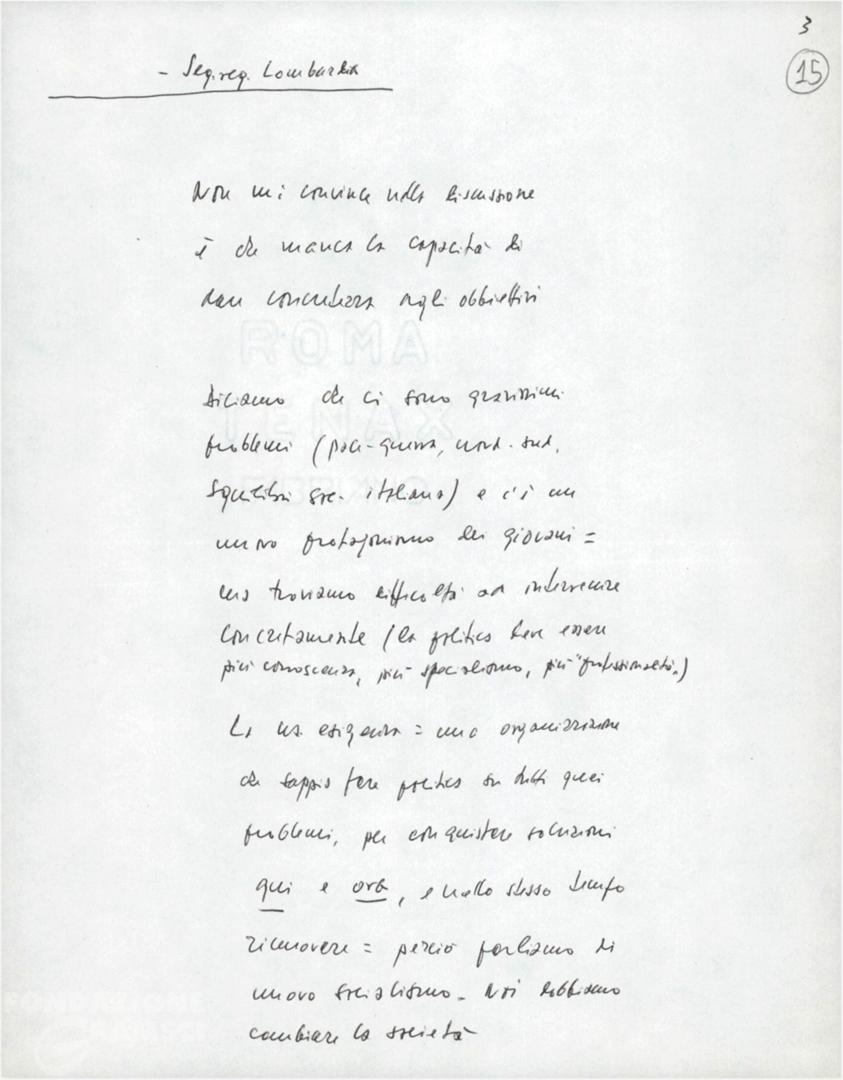 3
15
- Seg. reg. Lombardia
Non mi convince nella discussione
è che manca la capacità di
dare concretezza agli obbiettivi
ROMA
TENAX
diciamo che ci sono gravissimi
problemi (pace-guerra, nord-sud,
squilibri soc. italiana) e c'è un
nuovo protagonismo dei giovani =
ma troviamo difficoltà ad intervenire
concretamente (la politica deve essere
più conoscenza, più specialismo, più "professionalità")
La ns. esigenza = una organizzazione
che sappia fare politica su tutti quei
problemi, per conquistare soluzioni
qui e ora, e nello stesso tempo
rimuovere = perciò parliamo di
nuovo socialismo. Noi dobbiamo
cambiare la società
FONDAZIONE